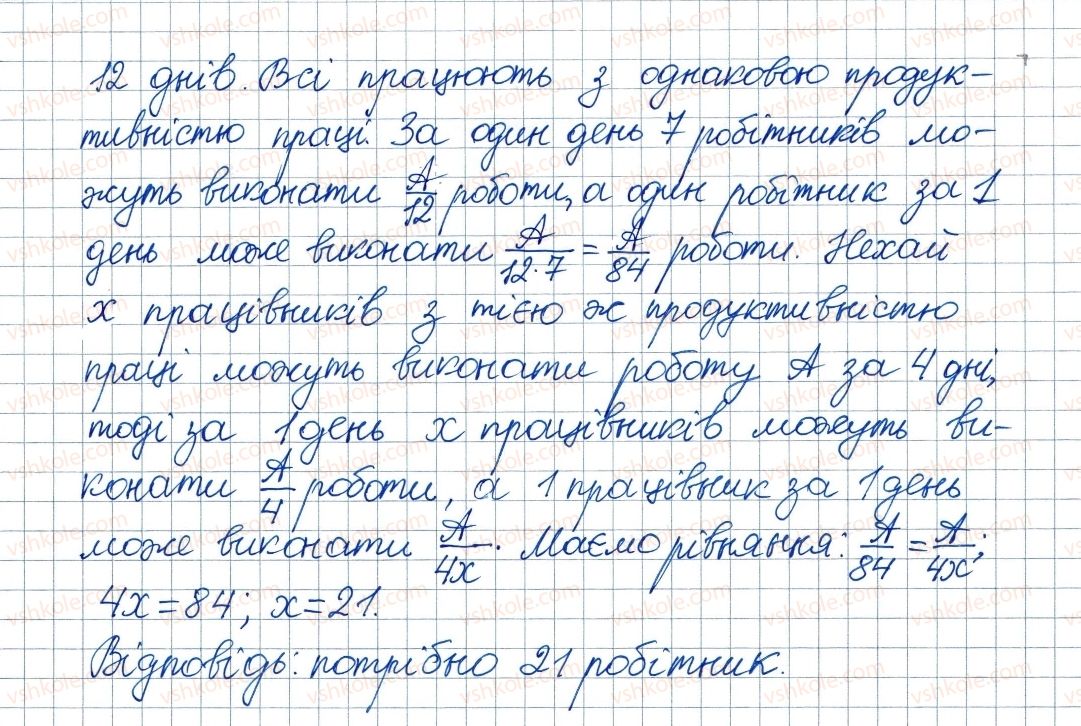 12 днів. Всі працюють з однаковою продук-
тивністю праці. За один день 7 робітників мо-
жуть виконати A/12 роботи, а один робітник за 1
день може виконати A/(12·7) = A/84 роботи. Нехай
x працівників з тією ж продуктивністю
праці можуть виконати роботу A за 4 дні,
тоді за 1 день x працівників можуть ви-
конати A/4 роботи, а 1 працівник за 1 день
може виконати A/4x. Маємо рівняння: A/84 = A/4x;
4x = 84; x = 21.
Відповідь: потрібно 21 робітник.